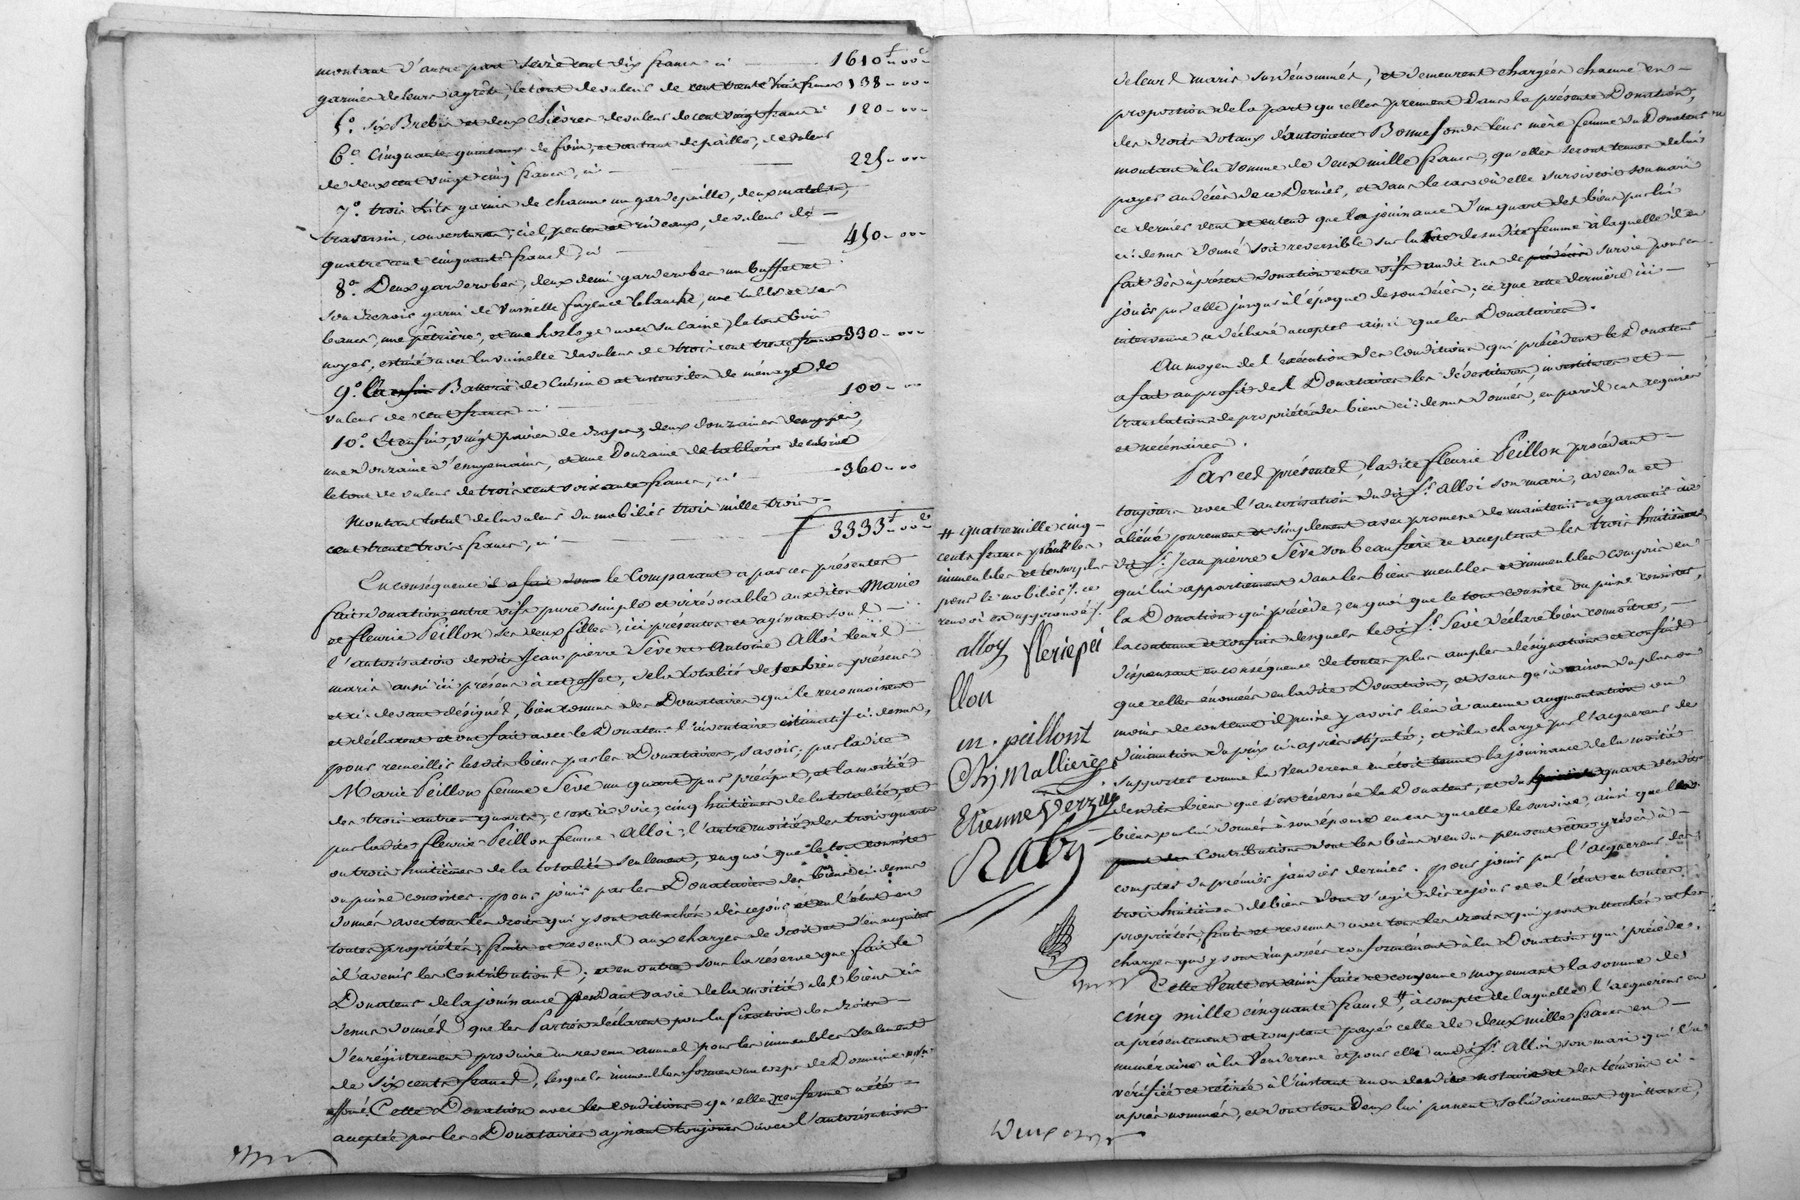 montant d'autre part seize cent dix francs ci 1610f 00c
garnies de leurs agrêts, le tout de valeur de cent trente huit francs 138 - 00 -
5°. six Brebis et deux chèvres de valeur de cent vingt francs 120 - 00 -
6°. Cinquante quintaux de foin, et autant de paille, de valeur
de deux cent vingt cinq francs, ci 225 - 00 -
7°. trois lits garnis de chacun un gardepaille, deux matelas,
traversin, couvertures, ciel, pentes et rideaux, de valeur de
quatre cent cinquante francs, ci 450 - 00 -
8°. Deux garderobes, deux demi garderobes un buffet et
son dressoir garni de vaisselle fayence blanche, une table et ses
bancs, une pêtrière, et une horloge avec sa caisse, le tout bois
noyer, estimé avec la vaisselle de valeur de trois cent trente francs 330 - 00 -
9°. Batterie de Cuisine et ustensiles de ménage de
valeur de cent francs ci 100 - 00
10°. Et enfin, vingt paires de draps, deux douzaines de nappes,
une douzaine d'essuyemains, et une douzaine de tabliers de cuisine
le tout de valeur de trois cent soixante francs, ci 360 - 00
Montant total de la valeur du mobilier trois mille trois
cent trente trois francs, ci 3333f 00c
En conséquence le Comparant a par ces présentes
fait donation entre vifs pure simple et irrévocable auxdites Marie
et fleurie Peillon ses deux filles, ici présentes et agissant sous
l'autorisation desdits Jean pierre Sève et Antoine Alloi leurs
maris aussi ici présens à cet effet, de la totalité de ses biens présens
et ci-devant désignés, bien connus des Donataires qui le reconnoissent
et déclarent et ont fait avec le Donateur l'inventaire estimatif ci-dessus,
pour recueillir lesdits biens par les Donataires, savoir; par ladite
Marie Peillon femme Sève un quart par préciput, et la moitié
des trois autres quarts, c'est à dire, cinq huitièmes de la totalité, et
par ladite fleurie Peillon femme Alloi, l'autre moitié des trois quarts
ou trois huitièmes de la totalité seulement, en quoi que le tout consiste
ou puisse consister. pour jouir par les Donataires des biens ci-dessus
donnés avec tous les droits qui y sont attachés dès ce jour et en l'état en
toutes propriétés, fruits et revenus aux charges de droit et d'en acquitter
à l'avenir les Contributions; et en outre sous la réserve que fait le
Donateur de la jouissance pendant sa vie de la moitié des biens ci
dessus donnés que les Parties déclarent pour la fixation des droits
d'enregistrement produire un revenu annuel pour les immeubles seulement
de six cents francs, lesquels immeubles forment un corps de Domaine non
affermé. Cette Donation avec les conditions qu'elle renferme a été
acceptée par les Donataires agissant toujours avec l'autorisation
de leurs maris susdénommés, et demeurent chargées chacune en
proportion de la part qu'elles prennent dans la présente Donation,
des droits dotaux d'antoinette Bonnefond leur mère femme du Donateur
montant à la somme de deux mille francs, qu'elles seront tenues de lui
payer au décès de ce Dernier, et dans le cas où elle survivroit son mari
ce dernier veut et entend que la jouissance d'un quart des biens par lui
ci-dessus donné soit reversible sur la tête de sadite femme à laquelle il en
fait dès à présent donation entre vifs audit cas de survie pour en
jouir par elle jusqu'à l'époque de son décès; ce que cette dernière ici
intervenue a déclaré accepter ainsi que les Donataires.
Au moyen de l'exécution des Conditions qui précèdent le Donateur
a fait au profit des Donataires les dévestitures, investitures et
translations de propriété des biens ci-dessus donnés, en pareil cas requises
et nécessaires.
Par ces présentes, ladite fleurie Peillon procédant
toujours avec l'autorisation dudit Sr. Alloi son mari, a vendu et
aliéné purement et simplement avec promesse de maintenir et garantir au
dit Sr. Jean pierre Sève son beaufrère ce acceptant les trois huitièmes
qui lui appartiennent dans les biens meubles et immeubles compris en
la Donation qui précède; en quoi que le tout consiste ou puisse consister,
la contenue et confins desquels ledit Sr. Sève déclare bien connoître,
dispensant en conséquence de toutes plus amples désignations et confins
que celles énoncées en ladite Donation, et sans qu'à raison du plus ou
moins de contenue il puisse y avoir lieu à aucune augmentation ou
diminution du prix ci-après stipulé; et à la charge par l'acquéreur de
supporter comme la venderesse en étoit tenue la jouissance de la moitié
desdits biens que s'est réservée le Donateur, et du quart desdits
biens par lui donné à son épouse en cas qu'elle le survive, ainsi que les
Contributions dont les biens vendus peuvent être grévés à
compter du premier janvier dernier. pour jouir par l'acquéreur des
trois huitièmes des biens dont s'agit dès ce jour et en l'état en toutes
propriétés, fruits et revenus avec tous les droits qui y sont attachés et les
charges qui y sont imposées conformément à la Donation qui précède.
Cette Vente est ainsi faite et convenue moyennant la somme de
cinq mille cinquante francs #, à compte de laquelle l'acquéreur en
a présentement et comptant payé celle de deux mille francs en
numéraire à la Venderesse et pour elle audit Sr. Alloi son mari qui l'a
vérifiée et retirée à l'instant au vu desdits notaire et des témoins ci-
après nommés, et dont tous Deux lui passent solidairement quittance,
# quatre mille cinq
cents francs pour les
immeubles et le surplus
pour le mobilier /. ce
renvoi est approuvé /.
alloy fleriepei
llon
m. peillont
Mallière
Etienne Verzier
Raby